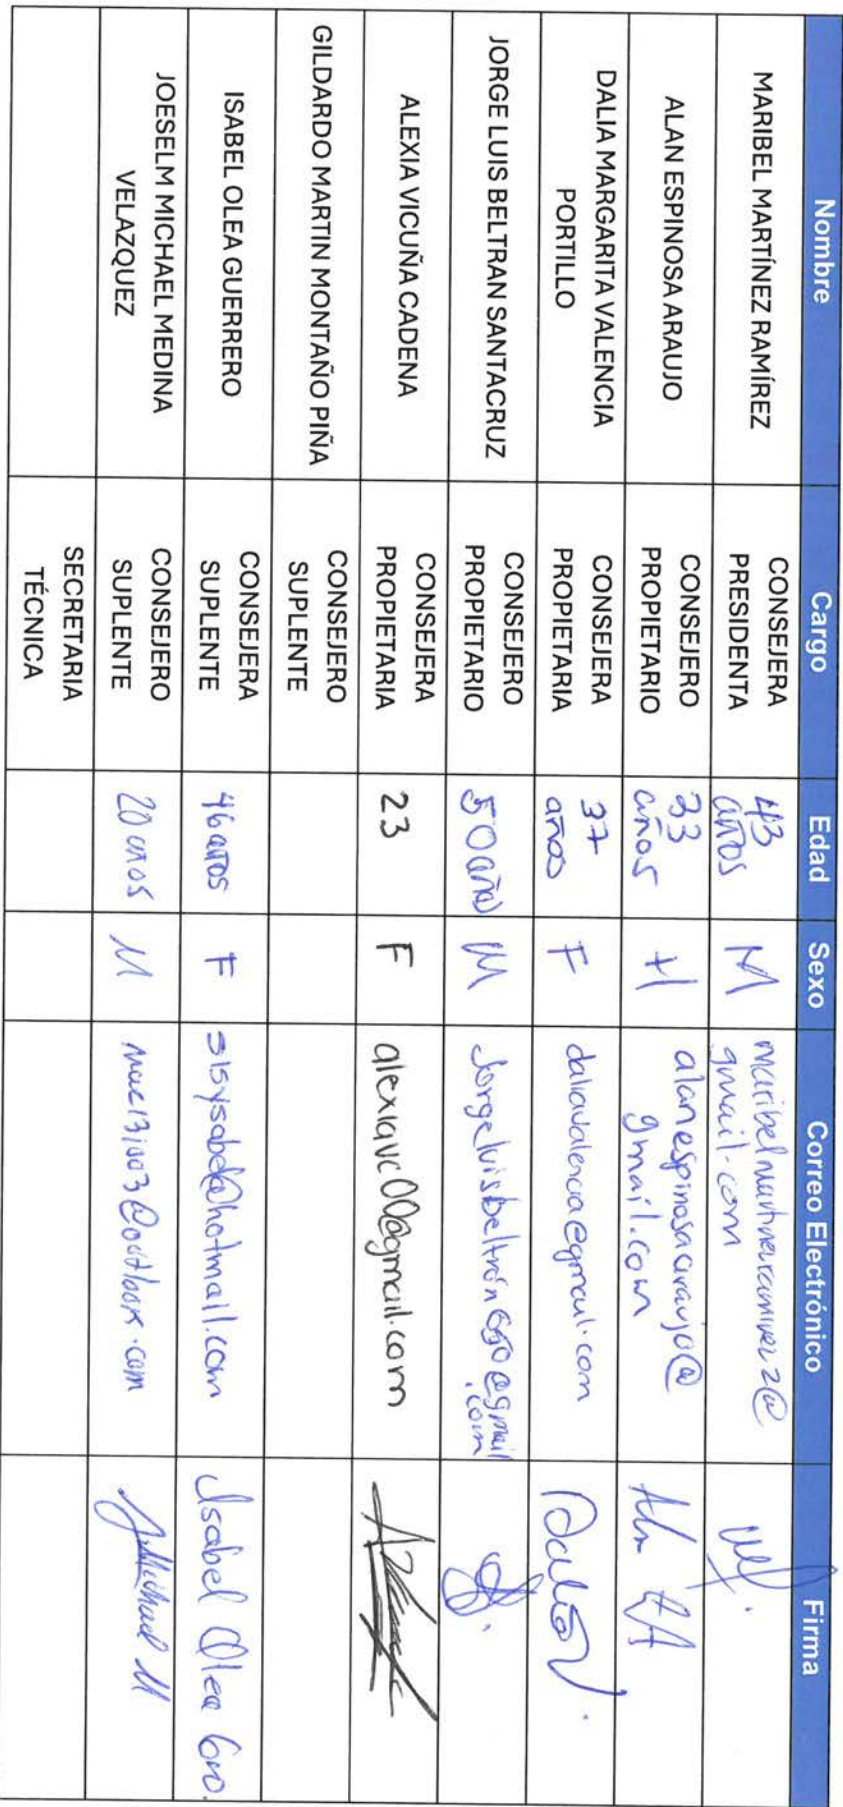 Nombre Cargo Edad Sexo Correo Electrónico Firma
MARIBEL MARTÍNEZ RAMÍREZ
CONSEJERA
PRESIDENTA
43
años
M
maribelmartinezramirez2@
gmail.com
ALAN ESPINOSA ARAUJO
CONSEJERO
PROPIETARIO
33
años
H
alanespinosaaraujo@
gmail.com
DALIA MARGARITA VALENCIA
PORTILLO
CONSEJERA
PROPIETARIA
37
años
F
daliavalencia@gmail.com
JORGE LUIS BELTRAN SANTACRUZ
CONSEJERO
PROPIETARIO
50 años
M
ALEXIA VICUÑA CADENA
CONSEJERA
PROPIETARIA
23
F
alexiavc00@gmail.com
GILDARDO MARTIN MONTAÑO PIÑA
CONSEJERO
SUPLENTE
ISABEL OLEA GUERRERO
CONSEJERA
SUPLENTE
46 años
F
sisysabel@hotmail.com
Isabel Olea Gro.
JOESELM MICHAEL MEDINA
VELAZQUEZ
CONSEJERO
SUPLENTE
20 años
M
Michael M
SECRETARIA
TÉCNICA